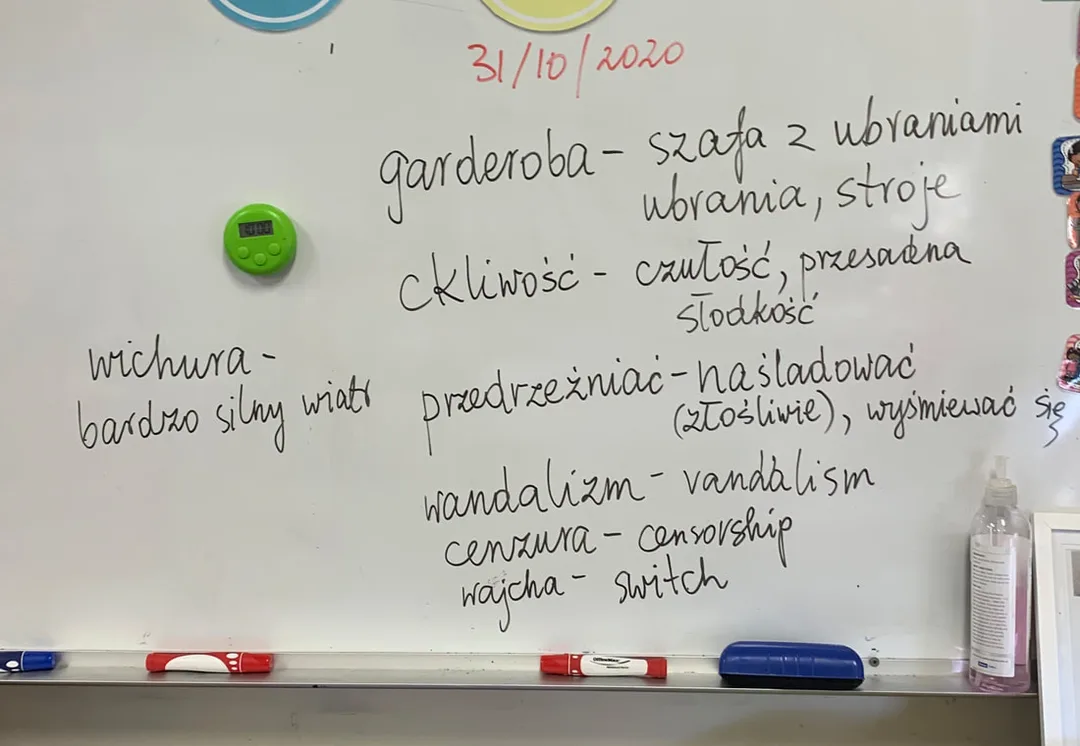 31/10/2020
garderoba - szafa z ubraniami
ubrania, stroje
ckliwość - czułość, przesadna
słodkość
wichura -
bardzo silny wiatr
przedrzeźniać - naśladować
(złośliwie), wyśmiewać się
wandalizm - vandalism
cenzura - censorship
wajcha - switch
OfficeMax